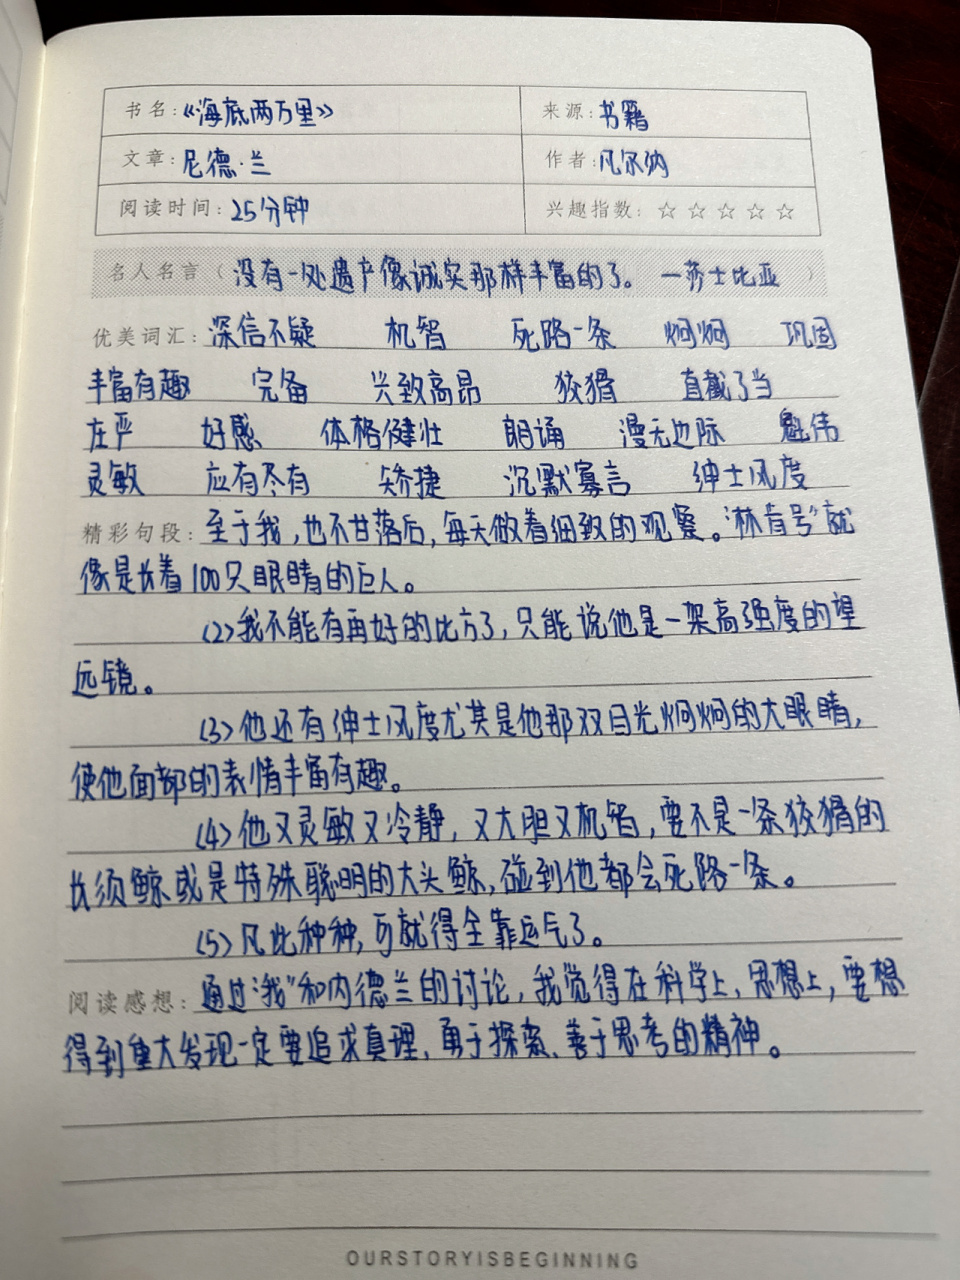 书名：《海底两万里》 来源：书籍
文章：尼德·兰 作者：凡尔纳
阅读时间：25分钟 兴趣指数：☆☆☆☆☆
名人名言（没有一处遗产像诚实那样丰富的了。 —莎士比亚）
优美词汇：深信不疑 机智 死路一条 炯炯 巩固
丰富有趣 完备 兴致高昂 狡猾 直截了当
庄严 好感 体格健壮 朗诵 漫无边际 魁伟
灵敏 应有尽有 矫捷 沉默寡言 绅士风度
精彩句段：至于我，也不甘落后，每天做着细致的观察。“林肯号”就
像是长着100只眼睛的巨人。
(2)我不能有再好的比方了，只能说他是一架高强度的望
远镜。
(3)他还有绅士风度尤其是他那双目光炯炯的大眼睛，
使他面部的表情丰富有趣。
(4)他又灵敏又冷静，又大胆又机智，要不是一条狡猾的
长须鲸或是特殊聪明的大头鲸，碰到他都会死路一条。
(5)凡此种种，可就得全靠运气了。
阅读感想：通过“我”和内德兰的讨论，我觉得在科学上、思想上，要想
得到重大发现一定要追求真理、勇于探索、善于思考的精神。
OURSTORYISBEGINNING